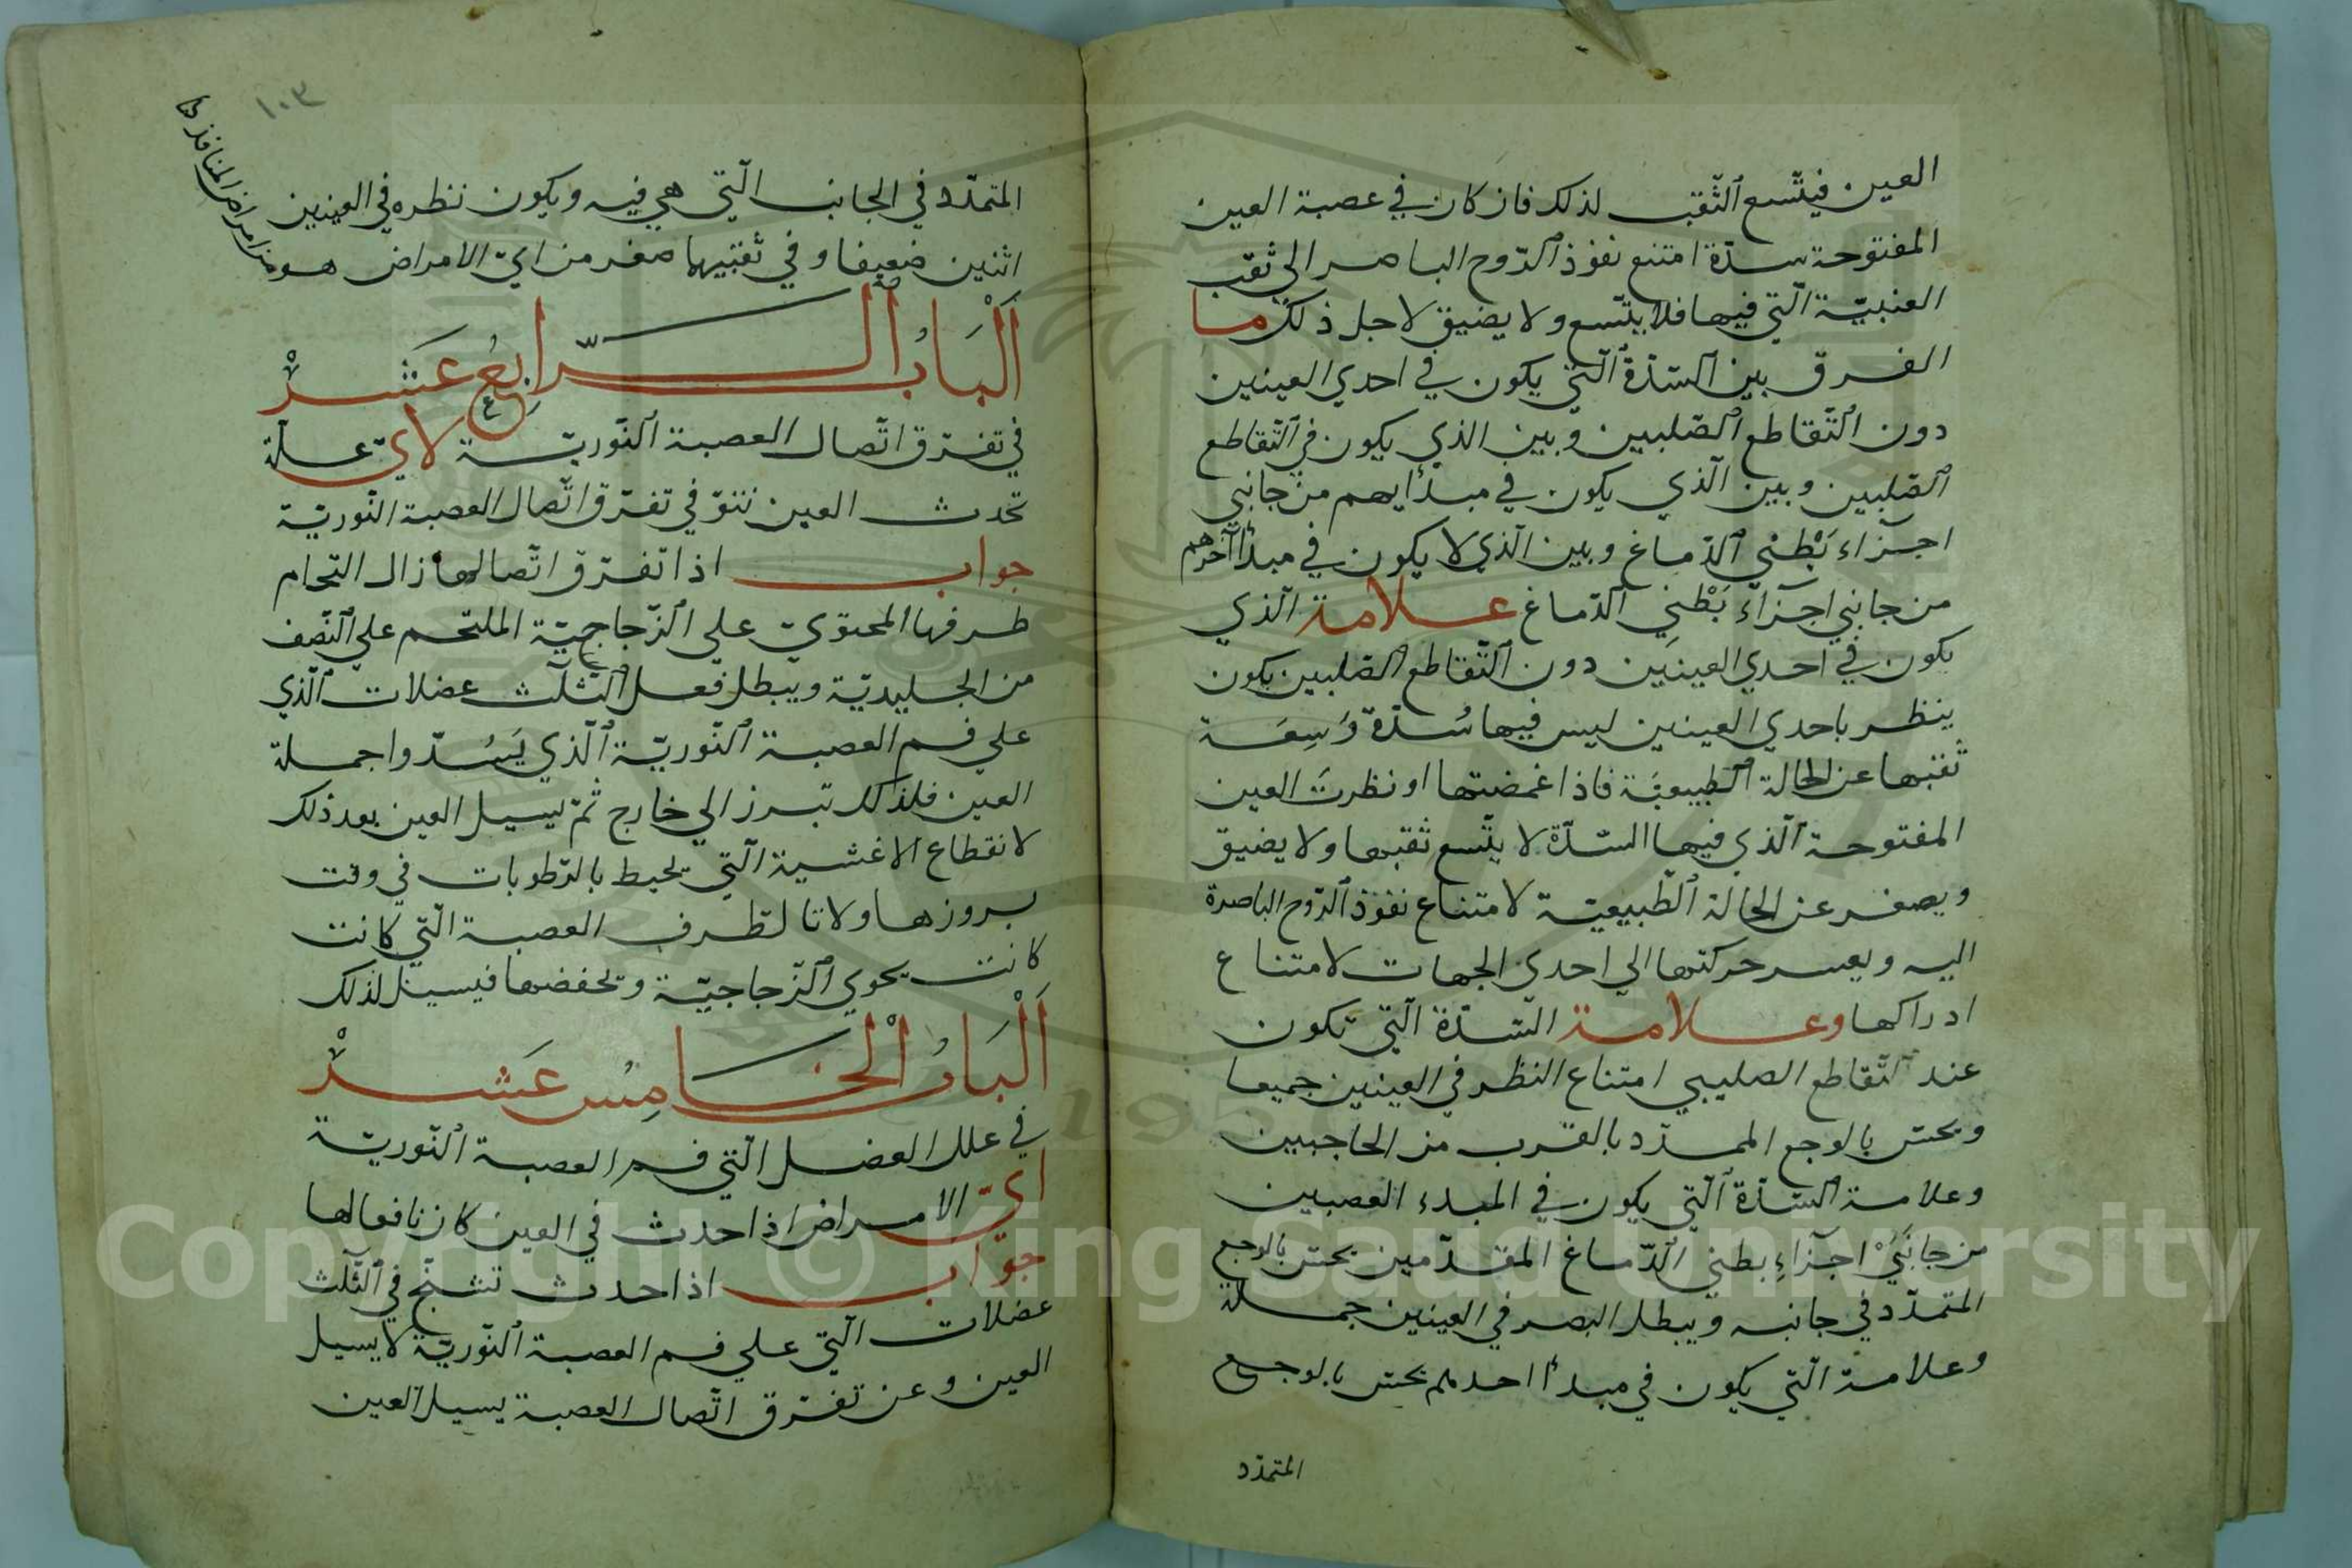 العين فيتّسع الثّقب لذلك فان كان في عصبة العين
المفتوحة سدّة امتنع نفوذ الرّوح الباصر الي ثقب
العنبيّة الّتي فيها فلا يتّسع ولا يضيق لاجل ذلك ما
الفرق بين السّدّة الّتي يكون في احدي العينين
دون التّقاطع الصّلبين وبين الذي يكون في التّقاطع
الصّلبين وبين الّذي يكون في مبدأ ايهم من جانبي
اجزاء بَطْني الدّماغ وبين الّذي لا يكون في مبدأ آخرهم
من جانبي اجزآء بَطْنِي الدّماغ علامة الّذي
يكون في احدي العينين دون التّقاطع الصّلبين يكون
ينظر باحدي العينين ليس فيها سُدّة وَسِعَة
ثقبها عن الحالة الطّبيعيّة فاذا غمضتها او نظرت العين
المفتوحة الّذي فيها السّدّة لا يتّسع ثقبها ولا يضيق
ويصغر عن الحالة الطّبيعيّة لامتناع نفوذ الرّوح الباصرة
اليه ويعسر حركتها الي احدي الجهات لامتناع
ادراكها وعلامة السّدّة الّتي تكون
عند التّقاطع الصليبي امتناع النظر في العينين جميعا
ويحسّ بالوجع الممدّد بالقرب من الحاجبين
وعلامة السّدّة الّتي يكون في المبدء العصبين
من جانَبَيْ اجزآءِ بطني الدّماغ المقدّمين يحسّ بالوجع
المتمدّد في جانبه ويبطل البصر في العينين جملة
وعلامة الّتي يكون في مبدأ احدهم يحسّ بالوجع
المتمدّد
١٠٣
المتمدّد في الجانب الّتي هي فيه ويكون نظره في العينين
اثنين ضعيفا وفي ثقبيهما صغر من ايّ الامراض هو
من امراض المنافذ
اَلْبَابُ الرّابِعُ عَشَرْ
في تفرّق اتّصال العصبة النّوريّة لايّ علّة
تحدث العين نتوّ في تفرّق اتّصال العصبة النّوريّة
جواب اذا تفرّق اتّصالها زال التحام
طرفها المحتويّ علي الزّجاجيّة الملتحم علي النّصف
من الجليديّة ويبطل فعل الثّلث عضلات الّذي
علي فم العصبة النّوريّة الّذي يَسُدّوا جملة
العين فلذلك تبرز الي خارج ثمّ يسيل العين بعد ذلك
لانقطاع الاغشية الّتي يحيط بالرّطوبات في وقت
بروزها ولاتا لطّرف العصبة الّتي كانت
كانت يحوي الزّجاجيّة وتحفضها فيسيل لذلك
اَلْبَابُ الْخَامِسُ عَشَرْ
في علل العضل الّتي فم العصبة النّوريّة
ايّ الامراض اذا حدث في العين كان نافعا لها
جوَاب اذا حدث تشنّج في الثّلث
عضلات الّتي علي فم العصبة النّوريّة لا يسيل
العين وعن تفرّق اتّصال العصبة يسيل العين
Copyright © King Saud University